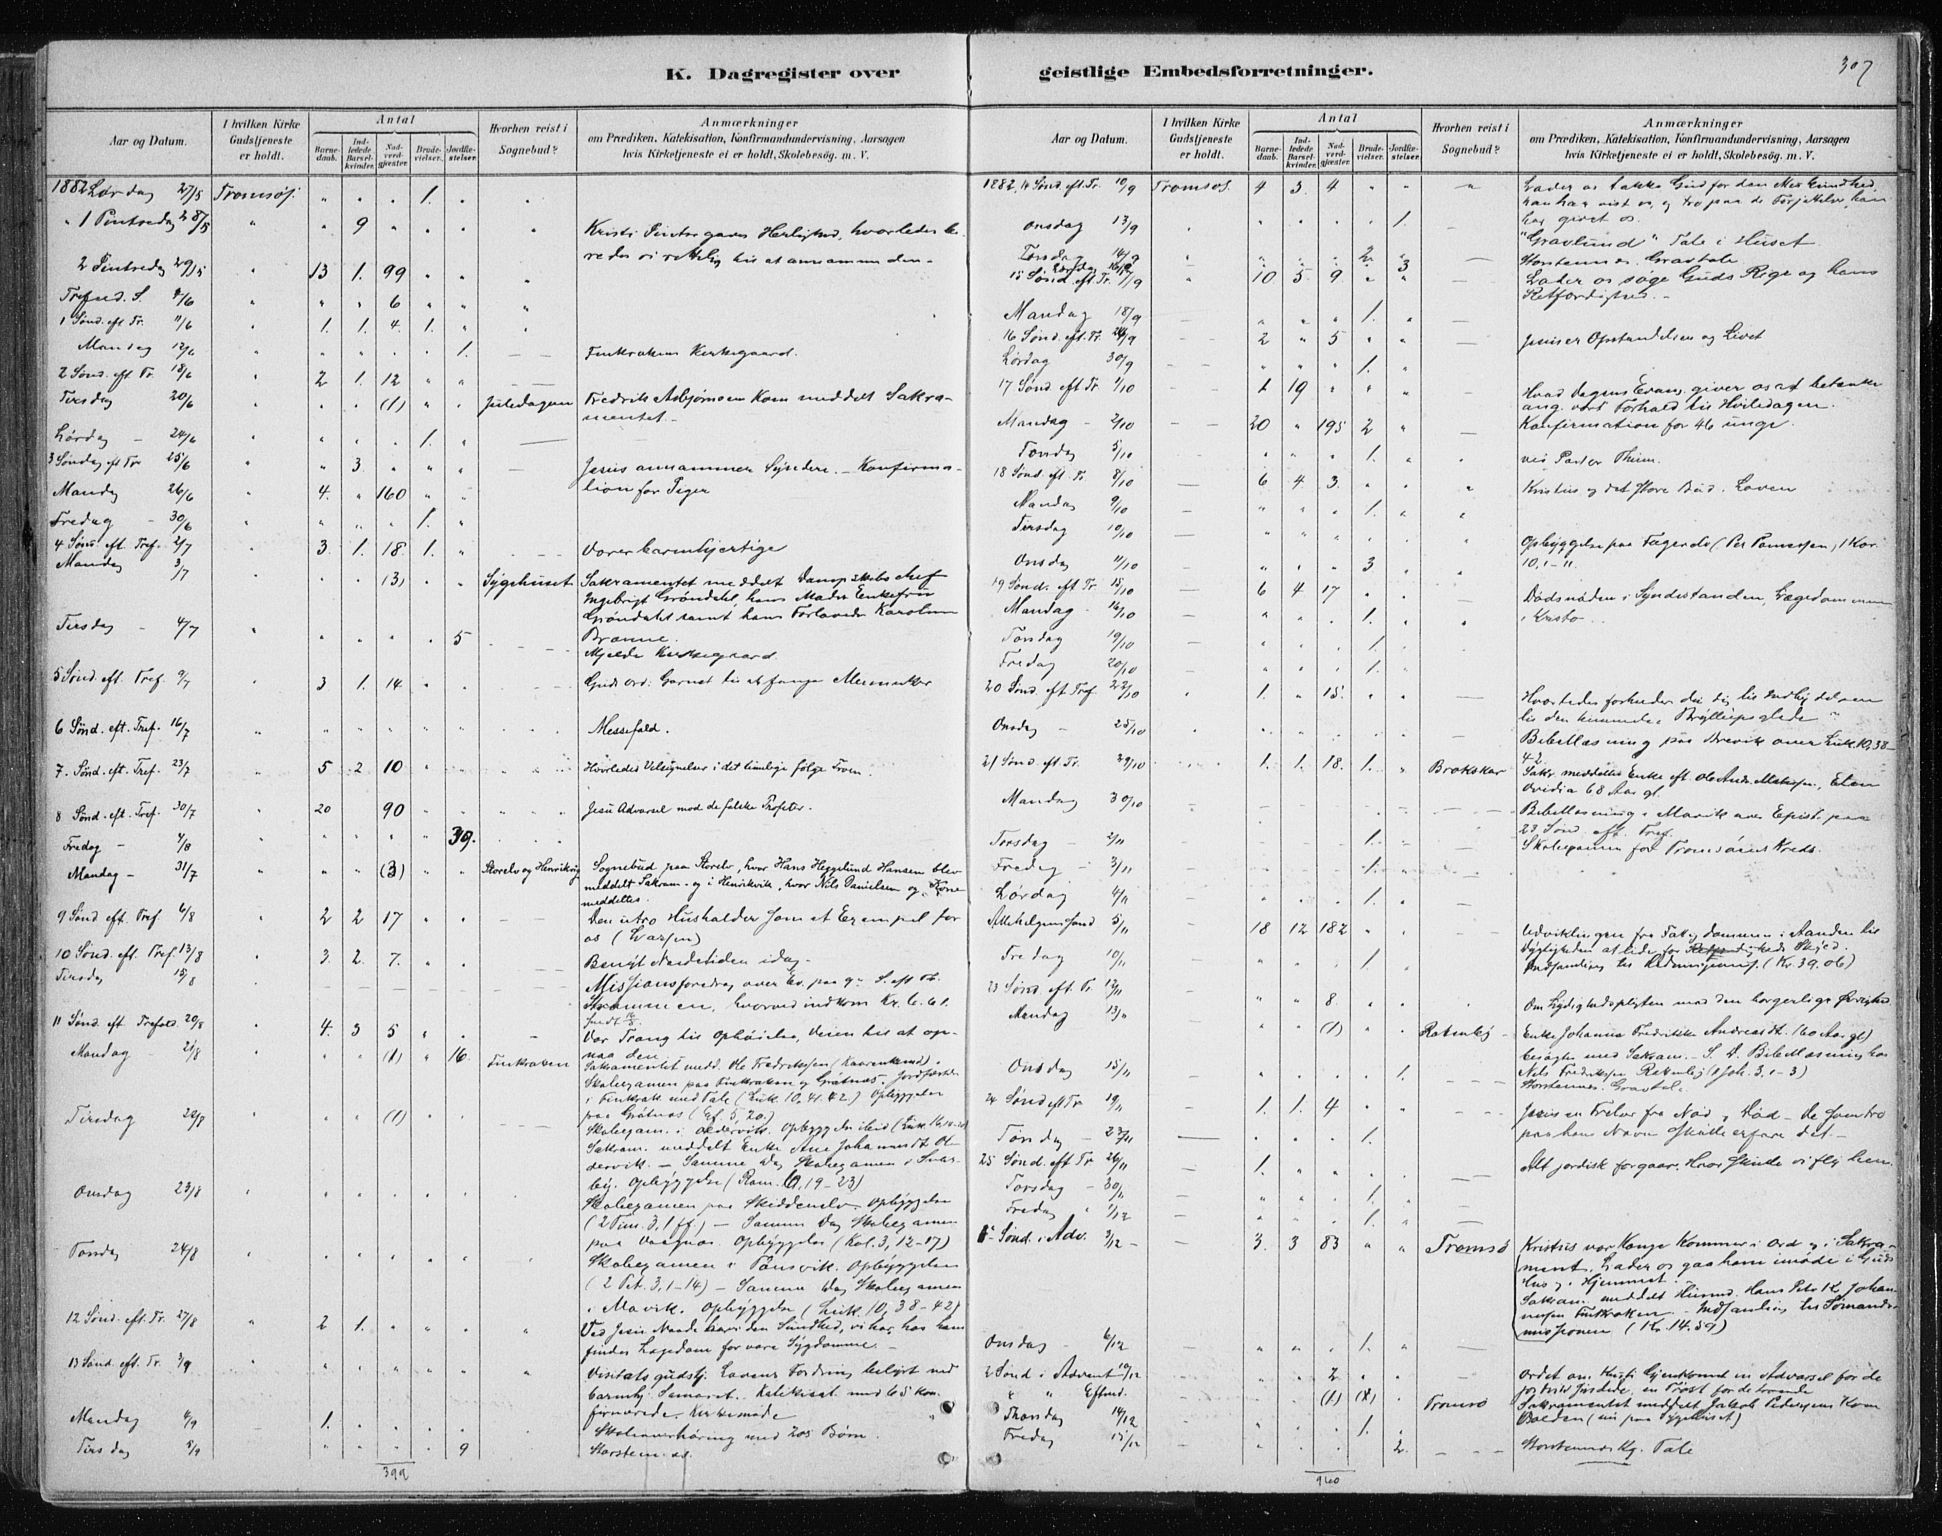 307
K. Dagregister over geistlige Embedsforretninger.
Aar og Datum. I hvilken Kirke Gudstjeneste er holdt. Antal Barnedaab. Indledede Barselkvinder. Nadverdgjester. Brudevielser. Jordfæstelser. Hvorhen reist i Sognebud? Anmærkninger om Prædiken, Katekisation, Konfirmandundervisning, Aarsagen hvis Kirketjeneste ei er holdt, Skolebesøg. m. V.
1882 Lørdag 27/5 Tromsø " " " 1. " "
" 1 Pintsedag 28/5 " " 9 " " " " Kristi Herlighed, hvorledes be-
redes vi rettelig til at annamme den.-
2 Pintsedag 29/5 " 13 1. 99 " " "
Trefud. S. 4/6 " " " 6 " " "
1 Sønd. eft Tr. 11/6 " 1. 1. 4. 1. " "
Mandag 12/6 " " " " " 1. — Finkroken Kirkegaard.
2 Sønd. eft Tr. 18/6 " 2 1. 12 " "
Tirsdag 20/6 " " " (1) " " Juledagen Fredrik Asbjørnsen Kom meddelt Sakra-
mentet.-
Lørdag - 24/6 " " " " 1. " —
3 Søndag eft Tr 25/6 " " 3 " " " — Jesus annammer Syndere. - Konfirma-
tion for Piger
Mandag 26/6 " 4. " 160 " "
Fredag - 30/6 " " " " 1. "
4 Sønd. eft. Tref. 2/7 " 3. 1. 18. 1. " - - - Vorer barmhjertige
Mandag 3/7 " " " (3) " " Sygehuset Sakramentet meddelt Dampskibschef
Ingebrigt Grøndahl, hans Moder Enkefru
Grøndahl samt hans Forlovede Karoline
Tirsdag - 4/7 " " " " " 5 Brænne.
Mjelde Kirkegaard.
5 Sønd. eft. Tref. 9/7 " 3 1. 14. " " Guds ord: Garnet til at fange Mennesker
6 Sønd. eft. Tref. 16/7 " " " " " " " Messefald.
7. Sønd. eft. Tref. 23/7 " 5 2 10 " " " Hvorledes Velsignelser i det timelige følge Troen.
8 Sønd. eft. Tref. 30/7 " 20 90 " " Jesu Advarsel mod de falske Profeter.
Fredag - 4/8 " " " " " 39.
Mandag - 31/7 " " " (3) " " Storelv og Henrikvig Sognebud paa Storelv, hvor Hans Heggelund Hansen blev
meddelt Sakram. og i Henrikvik, hvor Nils Danielsen og Kone
meddeltes.
9 Sønd eft. Tref 6/8 " 2 2 17 " " Den utro Husholder som et Exempel for
os (Larsen)
10 Sønd. eft. Tref 13/8 " 3. 2. 7. " " Benyt Naadetiden idag.
Tirsdag 15/8 — Missionsforedrag over Ev. paa 9de S. eft Tr.
Skrammen, hvorved indkom Kr. 6.61.
11 Sønd. eft Trefold. 20/8 " 4. 3 5 " " Vor Trang til Ophøielse, Veien til at op-
naa den
Mandag - 21/8 " " " (1) " 16. Finkroken Sakramentet medd. Ole Fredriksen
Skoleexamen paa Finkroken og Gråtnæs. Jordfæstelse
i Finkrok med Tale (Luk. 10, 41.42.) Opbyggelse
paa Gråtnæs (Ef. 5, 20.)
Tirsdag 22/8 " " " (1) " " - - - Skoleexam. i Oldervik. Opbyggelse ibid
Sakram. meddelt Enke Ane Johannesdt. Ol-
dervik. - Samme Dag Skoleexamen i Svars-
by. Opbyggelse (Rom. 6, 19-23)
Onsdag 23/8 " " " " " " Skoleexamen paa Skiddenelv. Opbyggelse
(2 Tim. 3, 1 ff) - Samme Dag Skoleexamen
paa Vaagnæs. Opbyggelse (Kol. 3, 12-17)
Torsdag 24/8 " " " " " " Skoleexamen i Tønsvik. Opbyggelse
(2 Pet. 3, 1-14) - Samme Dag Skoleexamen
i Movik. Opbyggelse (Luk. 10, 38-42)
12 Sønd. eft. Tr. 27/8 " 2 1. " " " " Ved Jesu Naade have vi den Sundhed, vi har, hos ham
findes Lægedom for vore Sygdomme. -
13 Sønd. eft. Tr. 3/9 " " " " " " " Visitatsgudstj. Lovens Fordring belyst ved
barmhj. Samarit. Katekisat. med 65 kon-
firmerede. Kirkemøde
Mandag 4/9 " 1. " " " " - - Skoleoverhøring med 205 Børn.
Tirsdag 5/9 " " " " 9 - - Storstennæs.
399
Aar og Datum. I hvilken Kirke Gudstjeneste er holdt. Antal Barnedaab. Indledede Barselkvinder. Nadverdgjester. Brudevielser. Jordfæstelser. Hvorhen reist i Sognebud? Anmærkninger om Prædiken, Katekisation, Konfirmandundervisning, Aarsagen hvis Kirketjeneste ei er holdt, Skolebesøg. m. V.
1882. 14 Sønd. eft. Tr. 10/9 Tromsø. 4 3. 4 " " " Lader os takke Gud for den Miskundhed,
han har vist os, og tro paa de Forjættelser, han
har givet os.
Onsdag 13/9 " " " " " 1. "Gravlund" Tale i Huset
Torsdag 14/9 " " " " 2 " — Storstennæs. Gravtale
Lørdag 16/9 3
15 Sønd. eft. Tr. 17/9 " 10 5 9 " " — Lader os søge Guds Rige og hans
Retfærdighed. -
Mandag 18/9 — " " " 1. " —
16 Sønd. eft. Tr. 24/9 — 2 " 5 " " — Jesus er Opstandelsen og Livet
Lørdag 30/9 — " " " 1. " —
17 Sønd eft Tr 1/10 1 19 " " " — Hvad Dagens Evang. giver os at betænke
ang. vort Forhold til Hviledagen.
Mandag - 2/10 — 20 " 195 2 " — Konfirmation for 46 unge.
Torsdag 5/10 — " " " 1. " " ved Pastor Thiim.
18 Sønd. eft. Tr. 8/10 — 6 4 3. " " " Kristus og det store Bud i Loven
Mandag 9/10 — " " " 1. " "
Tirsdag 10/10 — " " " " " " Opbyggelse paa Fagernes 1 Kor.
10, 1-11.
Onsdag 11/10 — " " " 3 " —
19 Sønd. eft. Tr. 15/10 — 6 4 17 " " — Dødsnøden i Syndestanden, Lægedommen
i Kristo.
Mandag - 16/10 — " " " 1. " "
Torsdag 19/10 — " " " 1. "
Fredag 20/10 — " " " 1. "
20 Sønd eft Tref. 22/10 " 1. " 15. " " — Hvorledes forholder du dig til Indbydelsen
til den himmelske Bryllupsglæde
Onsdag - 25/10 " " " " " " — Bibellæsning paa Brevik over Luk. 10, 38-
42
21 Sønd eft. Tr. 29/10 1. 1. 18. 1. " Brokskar Sakr. meddeltes Enke eft. Ole Andr. Mikkelsen, Elen
Ovidia 68 Aar gl.
Mandag 30/10 - - - Bibellæsning i Movik over Epist. paa
23 Sønd. eft. Tref.
Torsdag - 2/11 — " " " 1. " Skoleexamen for Tromsøsund Kreds.
Fredag - 3/11 — " " " 1. " —
Lørdag 4/11 — " " " 1. " —
Allehelgens sønd 5/11 — 18 12 182 " " — Udviklingen fra Fattigdommen i Aanden til
Dygtigheden at lide for Retfærdigheds Skyld.
Indsamling til Hedningemiss. (Kr. 39.06)
Fredag 10/11 — " " " 1. " —
23 Sønd eft. Tr. 12/11 — " " 8 " " Om Lydighedspligten mod den borgerlige Øvrighed
Mandag 13/11 — " " (1) " " Rakenby - Enke Johanna Fredrikke Andreasdt. (60 Aar gl)
besøgtes med Sakram. - S. D. Bibellæsning hos
Nils Fredriksen Rakenby (1 Joh. 3, 1-3)
Onsdag 15/11 — " " " " 1. Storstennes. Gravtale
24 Sønd eft Tr. 19/11 — 1. 1. 4 " " — Jesus en Frelser fra Nød og Død - De som tro
paa hans Navn skulle erfare det.-
Torsdag - 23/11 — " " " 1. —
25 Sønd. eft Tr 26/11 — 1. " " " " — Alt jordisk forgaar. Hvor skulle vi fly hen.
Torsdag - 30/11 — " " " 1. "
Fredag " 1/12 — " " " 1. " —
1ste Sønd. i Adv. 3/12 — 3. 3 83 " " Tromsø Kristus vor Konge kommer i Ord og i Sakra-
ment. Lader os gaa ham imøde i Guds
Hus og i Hjemmet.
Sakram. meddelt Husmd. Hans Petr K. Johan-
nesen Finkroken - Indsamling til Sømands-
missionen (Kr. 14.59)
Onsdag - 6/12 — " " " 1. "
2 Sønd i Advent 10/12 — " " 2 " " Ordet om Kristi Gjenkomst en Advarsel for de
en Trøst for de troende
" " Efterm. — (1) (1) Tromsø Sakramentet meddelt Jakob Pedersen Kom
(nu paa Sygehuset)
Thorsdag 14/12 — 1. "
Fredag 15/12 — " " " " 2. — Storstennes Kg. Tale
960